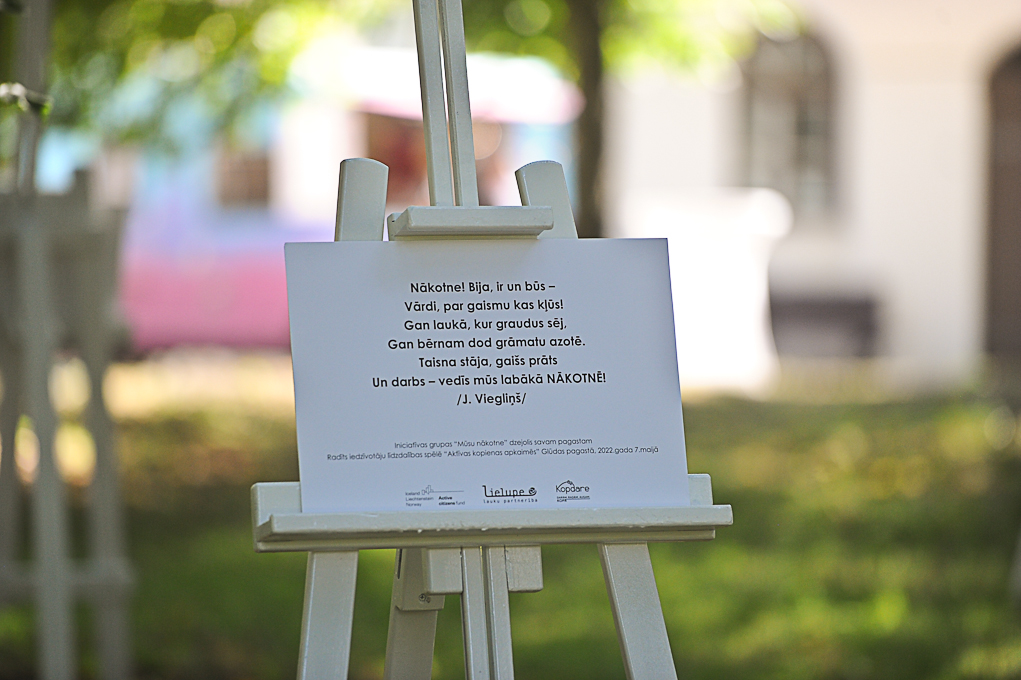 Nākotne! Bija, ir un būs –
Vārdi, par gaismu kas kļūs!
Gan laukā, kur graudus sēj,
Gan bērnam dod grāmatu azotē.
Taisna stāja, gaišs prāts
Un darbs – vedīs mūs labākā NĀKOTNĒ!
/J. Viegliņš/
Iniciatīvas grupas "Mūsu nākotne" dzejolis savam pagastam
Radīts iedzīvotāju līdzdalības spēlē "Aktīvas kopienas apkaimēs" Glūdas pagastā, 2022.gada 7.maijā
Iceland
Liechtenstein
Norway
Active
citizens fund
Lielupe
lauku partnerība
Kopdare